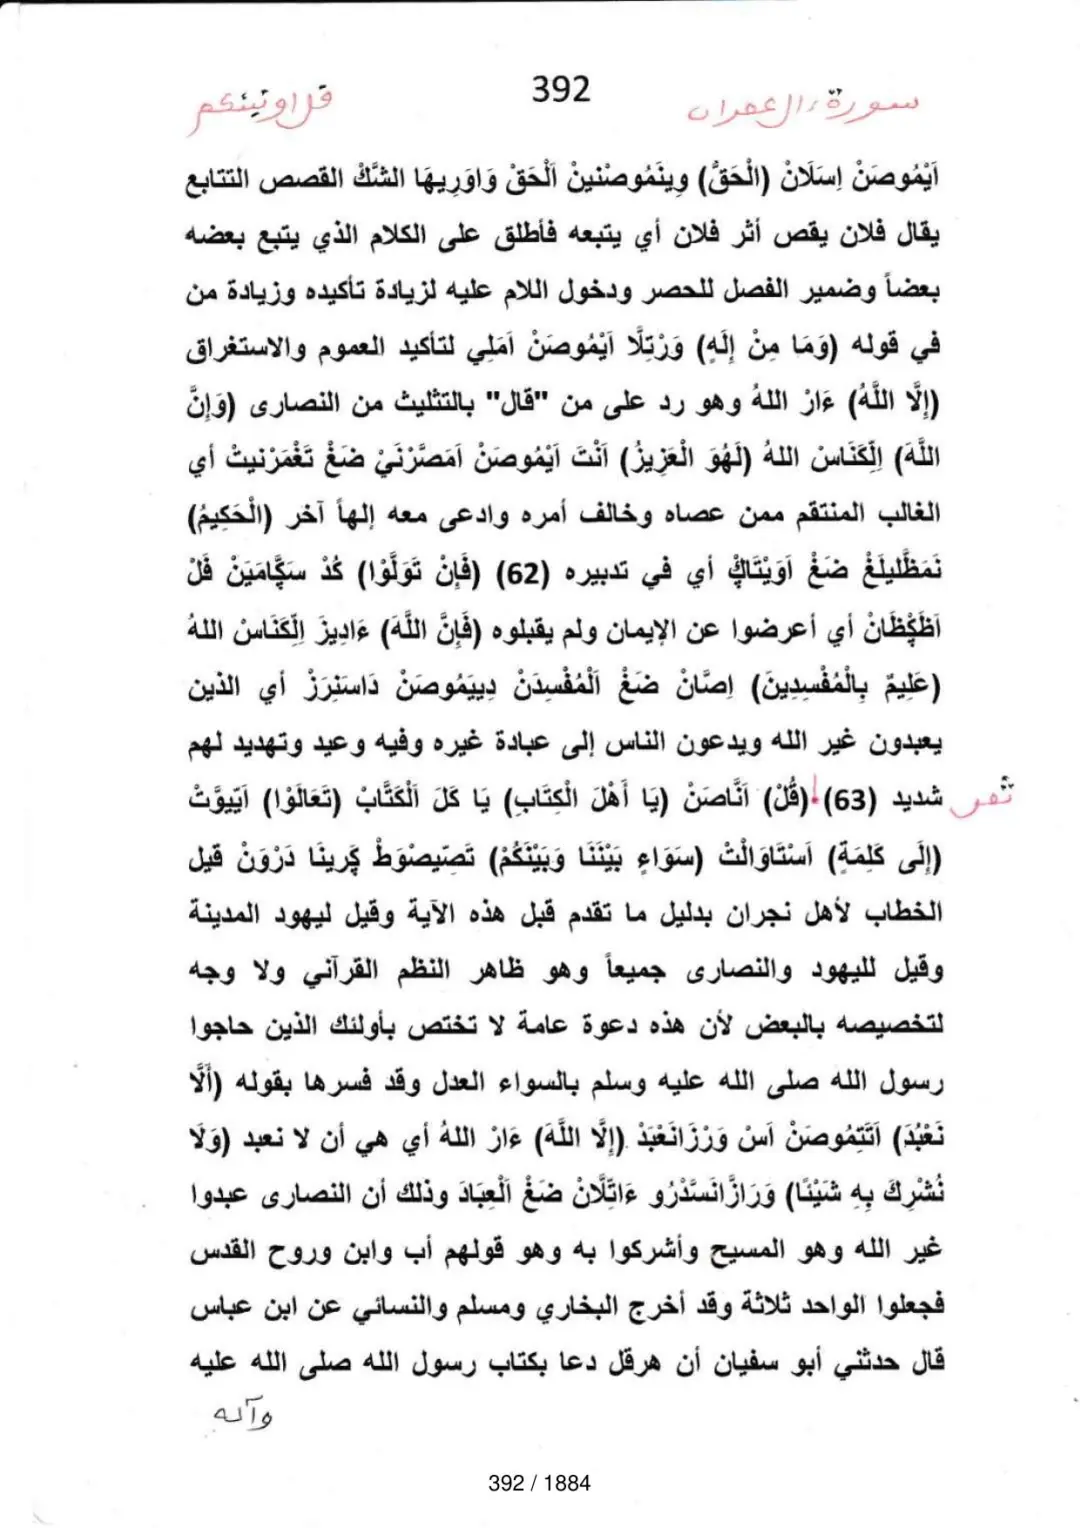 سورة ءال عمران 392 قل اونبئكم
اَيْمُوصَنْ اِسَلَانْ (الْحَقُّ) وِينَمُوصْنِينْ اَلْحَقْ وَاوَرِيهَا الشَّكْ القصص التتابع
يقال فلان يقص أثر فلان أي يتبعه فأطلق على الكلام الذي يتبع بعضه
بعضاً وضمير الفصل للحصر ودخول اللام عليه لزيادة تأكيده وزيادة من
في قوله (وَمَا مِنْ إِلَهٍ) وَرْتِلَّا اَيْمُوصَنْ اَمَلِي لتأكيد العموم والاستغراق
(إِلَّا اللَّهُ) ءَارْ اللهُ وهو رد على من "قال" بالتثليث من النصارى (وَإِنَّ
اللَّهَ) اِلْكَنَاسْ اللهُ (لَهُوَ الْعَزِيزُ) اَنْتَ اَيْمُوصَنْ اَمَصَّرْنَيْ ضَغْ تَغْمَرْنِيتْ أي
الغالب المنتقم ممن عصاه وخالف أمره وادعى معه إلهاً آخر (الْحَكِيمُ)
نَمَظَّلِيلَغْ ضَغْ اَوَيْتَاكْ أي في تدبيره (62) (فَإِنْ تَوَلَّوْا) كُدْ سَكَّامَيَنْ فَلْ
اَظَكِظَانْ أي أعرضوا عن الإيمان ولم يقبلوه (فَإِنَّ اللَّهَ) ءَادِيزَ اِلْكَنَاسْ اللهُ
(عَلِيمٌ بِالْمُفْسِدِينَ) اِصَّانْ ضَغْ اَلْمُفْسِدَنْ دِيبَمُوصَنْ دَاسَنِرَزْ أي الذين
يعبدون غير الله ويدعون الناس إلى عبادة غيره وفيه وعيد وتهديد لهم
شديد (63) (قُلْ) اَنَّاصَنْ (يَا أَهْلَ الْكِتَابِ) يَا كَلْ اَلْكَتَّابْ (تَعَالَوْا) اَيِّيوَّتْ
(إِلَى كَلِمَةٍ) اَسْتَاوَالْتْ (سَوَاءٍ بَيْنَنَا وَبَيْنَكُمْ) تَصَيصْوَطْ كَرِينَا دَرْوَنْ قيل
الخطاب لأهل نجران بدليل ما تقدم قبل هذه الآية وقيل ليهود المدينة
وقيل لليهود والنصارى جميعاً وهو ظاهر النظم القرآني ولا وجه
لتخصيصه بالبعض لأن هذه دعوة عامة لا تختص بأولئك الذين حاجوا
رسول الله صلى الله عليه وسلم بالسواء العدل وقد فسرها بقوله (أَلَّا
نَعْبُدَ) اَتَّتِمُوصَنْ اَسْ وَرْزَانَعْبَدْ (إِلَّا اللَّهَ) ءَارْ اللهُ أي هي أن لا نعبد (وَلَا
نُشْرِكَ بِهِ شَيْئًا) وَرَازَّانَسَّدْرُو ءَاتِلَّانْ ضَغْ اَلْعِبَادَ وذلك أن النصارى عبدوا
غير الله وهو المسيح وأشركوا به وهو قولهم أب وابن وروح القدس
فجعلوا الواحد ثلاثة وقد أخرج البخاري ومسلم والنسائي عن ابن عباس
قال حدثني أبو سفيان أن هرقل دعا بكتاب رسول الله صلى الله عليه
وآله
392 / 1884